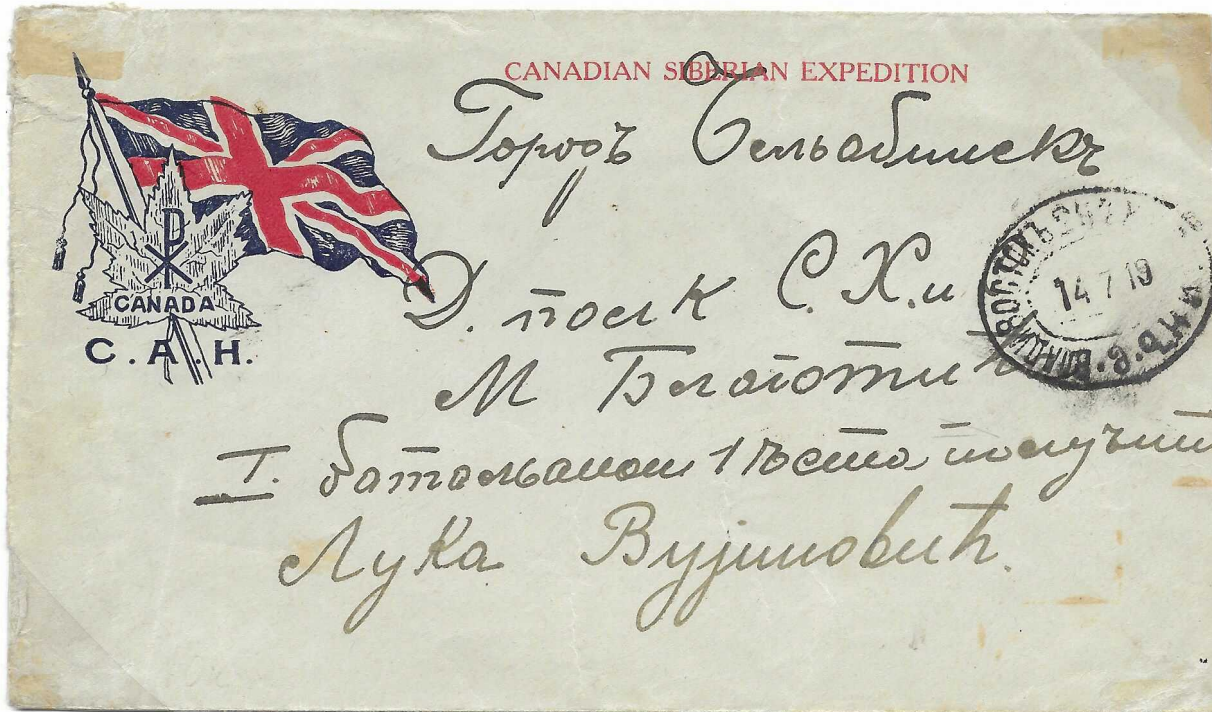 CANADIAN SIBERIAN EXPEDITION
CANADA
C. A. H.
Городъ Челябинскъ
Д. полк С. Х. и
М Благотић
I. батальонои 1 получит
Лука Вујиновић.
ВЛАДИВОСТОКЪ
14 7 19